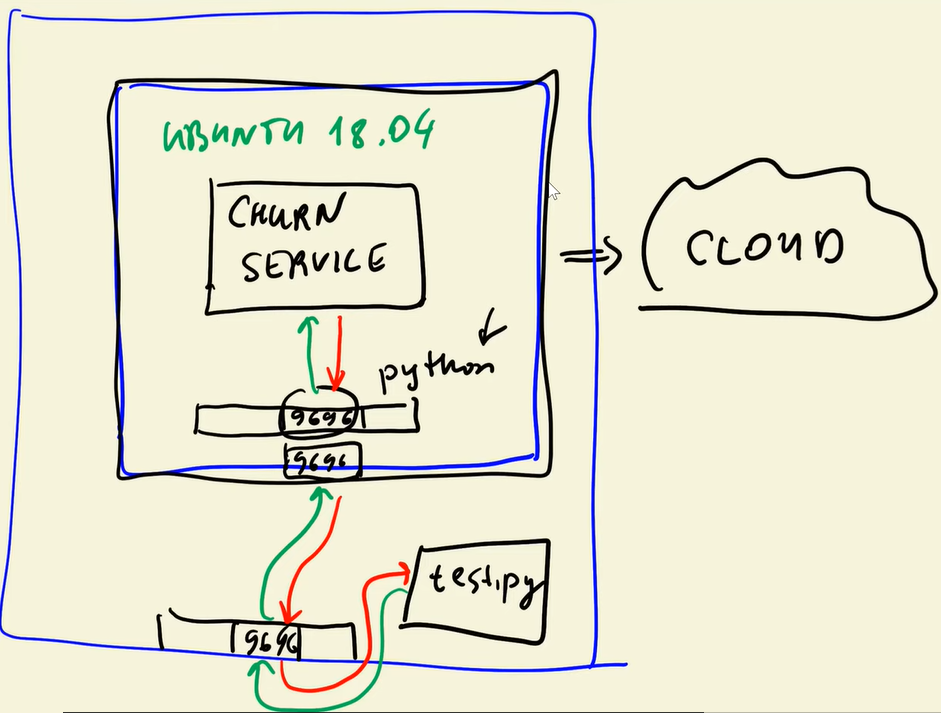 UBUNTU 18.04
CHURN
SERVICE
python
9696
9696
CLOUD
test.py
9696